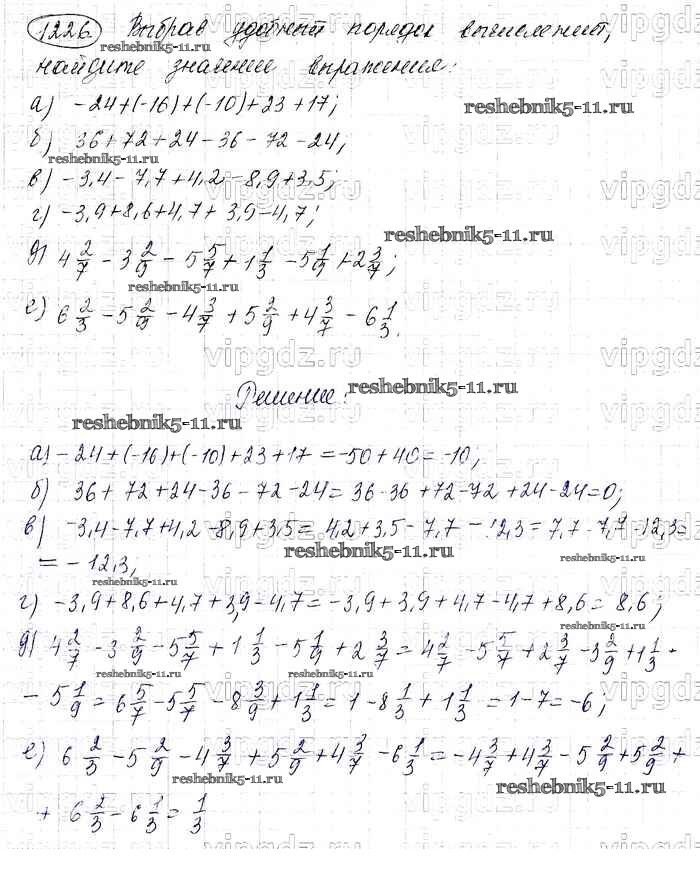 1226 Выбрав удобный порядок вычислений,
найдите значение выражения:
а) -24+(-16)+(-10)+23+17;
reshebnik5-11.ru
б) 36+72+24-36-72-24;
reshebnik5-11.ru
в) -3,4-7,7+4,2-8,9+3,5;
vipgdz.ru
г) -3,9+8,6+4,7+3,9-4,7;
reshebnik5-11.ru
д) 4 2/7 - 3 2/9 - 5 5/7 + 1 1/3 - 5 1/9 + 2 3/7;
reshebnik5-11.ru
е) 6 2/3 - 5 2/9 - 4 3/7 + 5 2/9 + 4 3/7 - 6 1/3.
vipgdz.ru
Решение:
reshebnik5-11.ru
reshebnik5-11.ru
а) -24+(-16)+(-10)+23+17=-50+40=-10;
б) 36+72+24-36-72-24=36-36+72-72+24-24=0;
в) -3,4-7,7+4,2-8,9+3,5=4,2+3,5-7,7-12,3=7,7-7,7-12,3=
reshebnik5-11.ru
=-12,3;
reshebnik5-11.ru
г) -3,9+8,6+4,7+3,9-4,7=-3,9+3,9+4,7-4,7+8,6=8,6;
д) 4 2/7 - 3 2/9 - 5 5/7 + 1 1/3 - 5 1/9 + 2 3/7 = 4 2/7 - 5 5/7 + 2 3/7 - 3 2/9 + 1 1/3 -
reshebnik5-11.ru
- 5 1/9 = 6 5/7 - 5 5/7 - 8 3/9 + 1 1/3 = 1 - 8 1/3 + 1 1/3 = 1-7=-6;
reshebnik5-11.ru
е) 6 2/3 - 5 2/9 - 4 3/7 + 5 2/9 + 4 3/7 - 6 1/3 = -4 3/7 + 4 3/7 - 5 2/9 + 5 2/9 +
reshebnik5-11.ru
reshebnik5-11.ru
+ 6 2/3 - 6 1/3 = 1/3